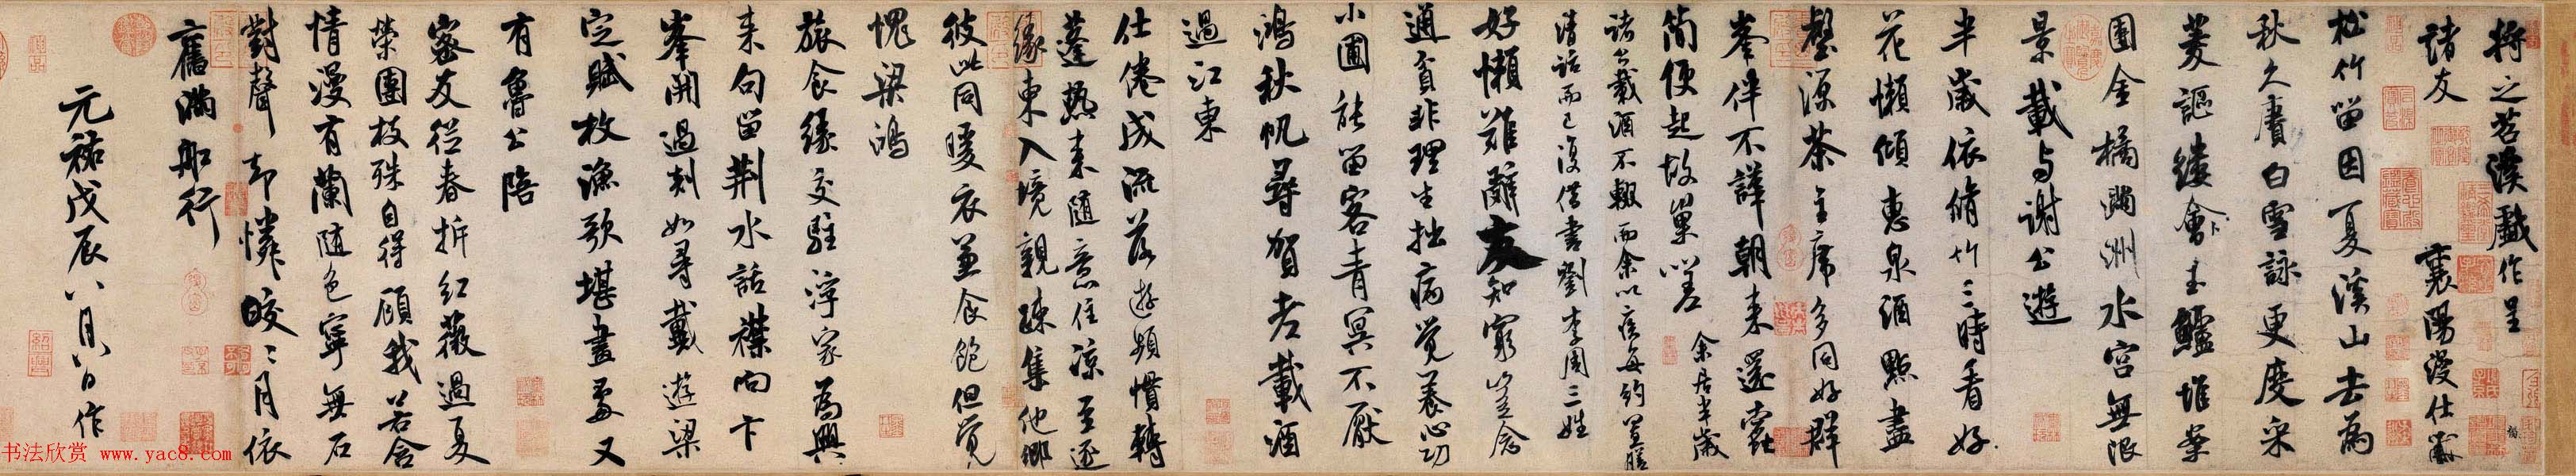 将之苕溪戲作呈
諸友　襄陽漫仕黻
松竹留因夏溪山去為
秋久賡白雪詠更度采
菱謳縷會玉鱸堆案
團金橘滿洲水宮無限
景載与謝公遊
半歲依修竹三時看好
花懶傾惠泉酒點盡
壑源茶主席多同好群
峯伴不譁朝来還蠹
簡便起故巢嗟　余居半歲
諸公載酒不輟而余以疾每約置膳
清話而已復借書劉李周三姓
好懶難辭友知窮豈念
通貧非理生拙病覺養心功
小圃能留客青冥不厭
鴻秋帆尋賀老載酒
過江東
仕倦成流落遊頻慣轉
蓬熱来隨意住凉至逐
緣東入境親疎集他鄉
彼此同暖衣兼食飽但覺
愧梁鴻
旅食緣交駐浮家為興
来句留荆水話襟向卞
峯開過剡如尋戴遊梁
定賦枚漁歌堪畫處又
有魯公陪
密友從春拆紅薇過夏
榮團枝殊自得顧我若含
情漫有蘭隨色寧無石
對聲却憐皎ミ月依
舊滿船行
元祐戊辰八月八日作
书法欣赏 www.yac8.com